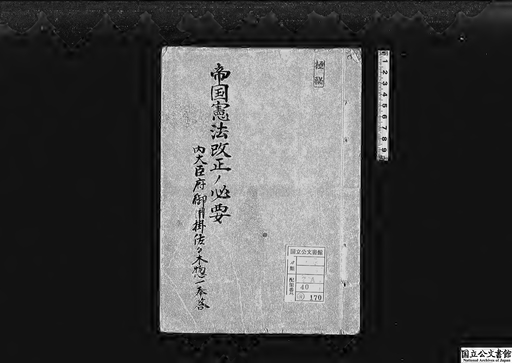 極秘
帝国憲法改正ノ必要
内大臣府御用掛佐々木惣一奉答
国立公文書館
分類
配架番号
40
179
1 2 3 4 5 6 7 8 9
国立公文書館
National Archives of Japan